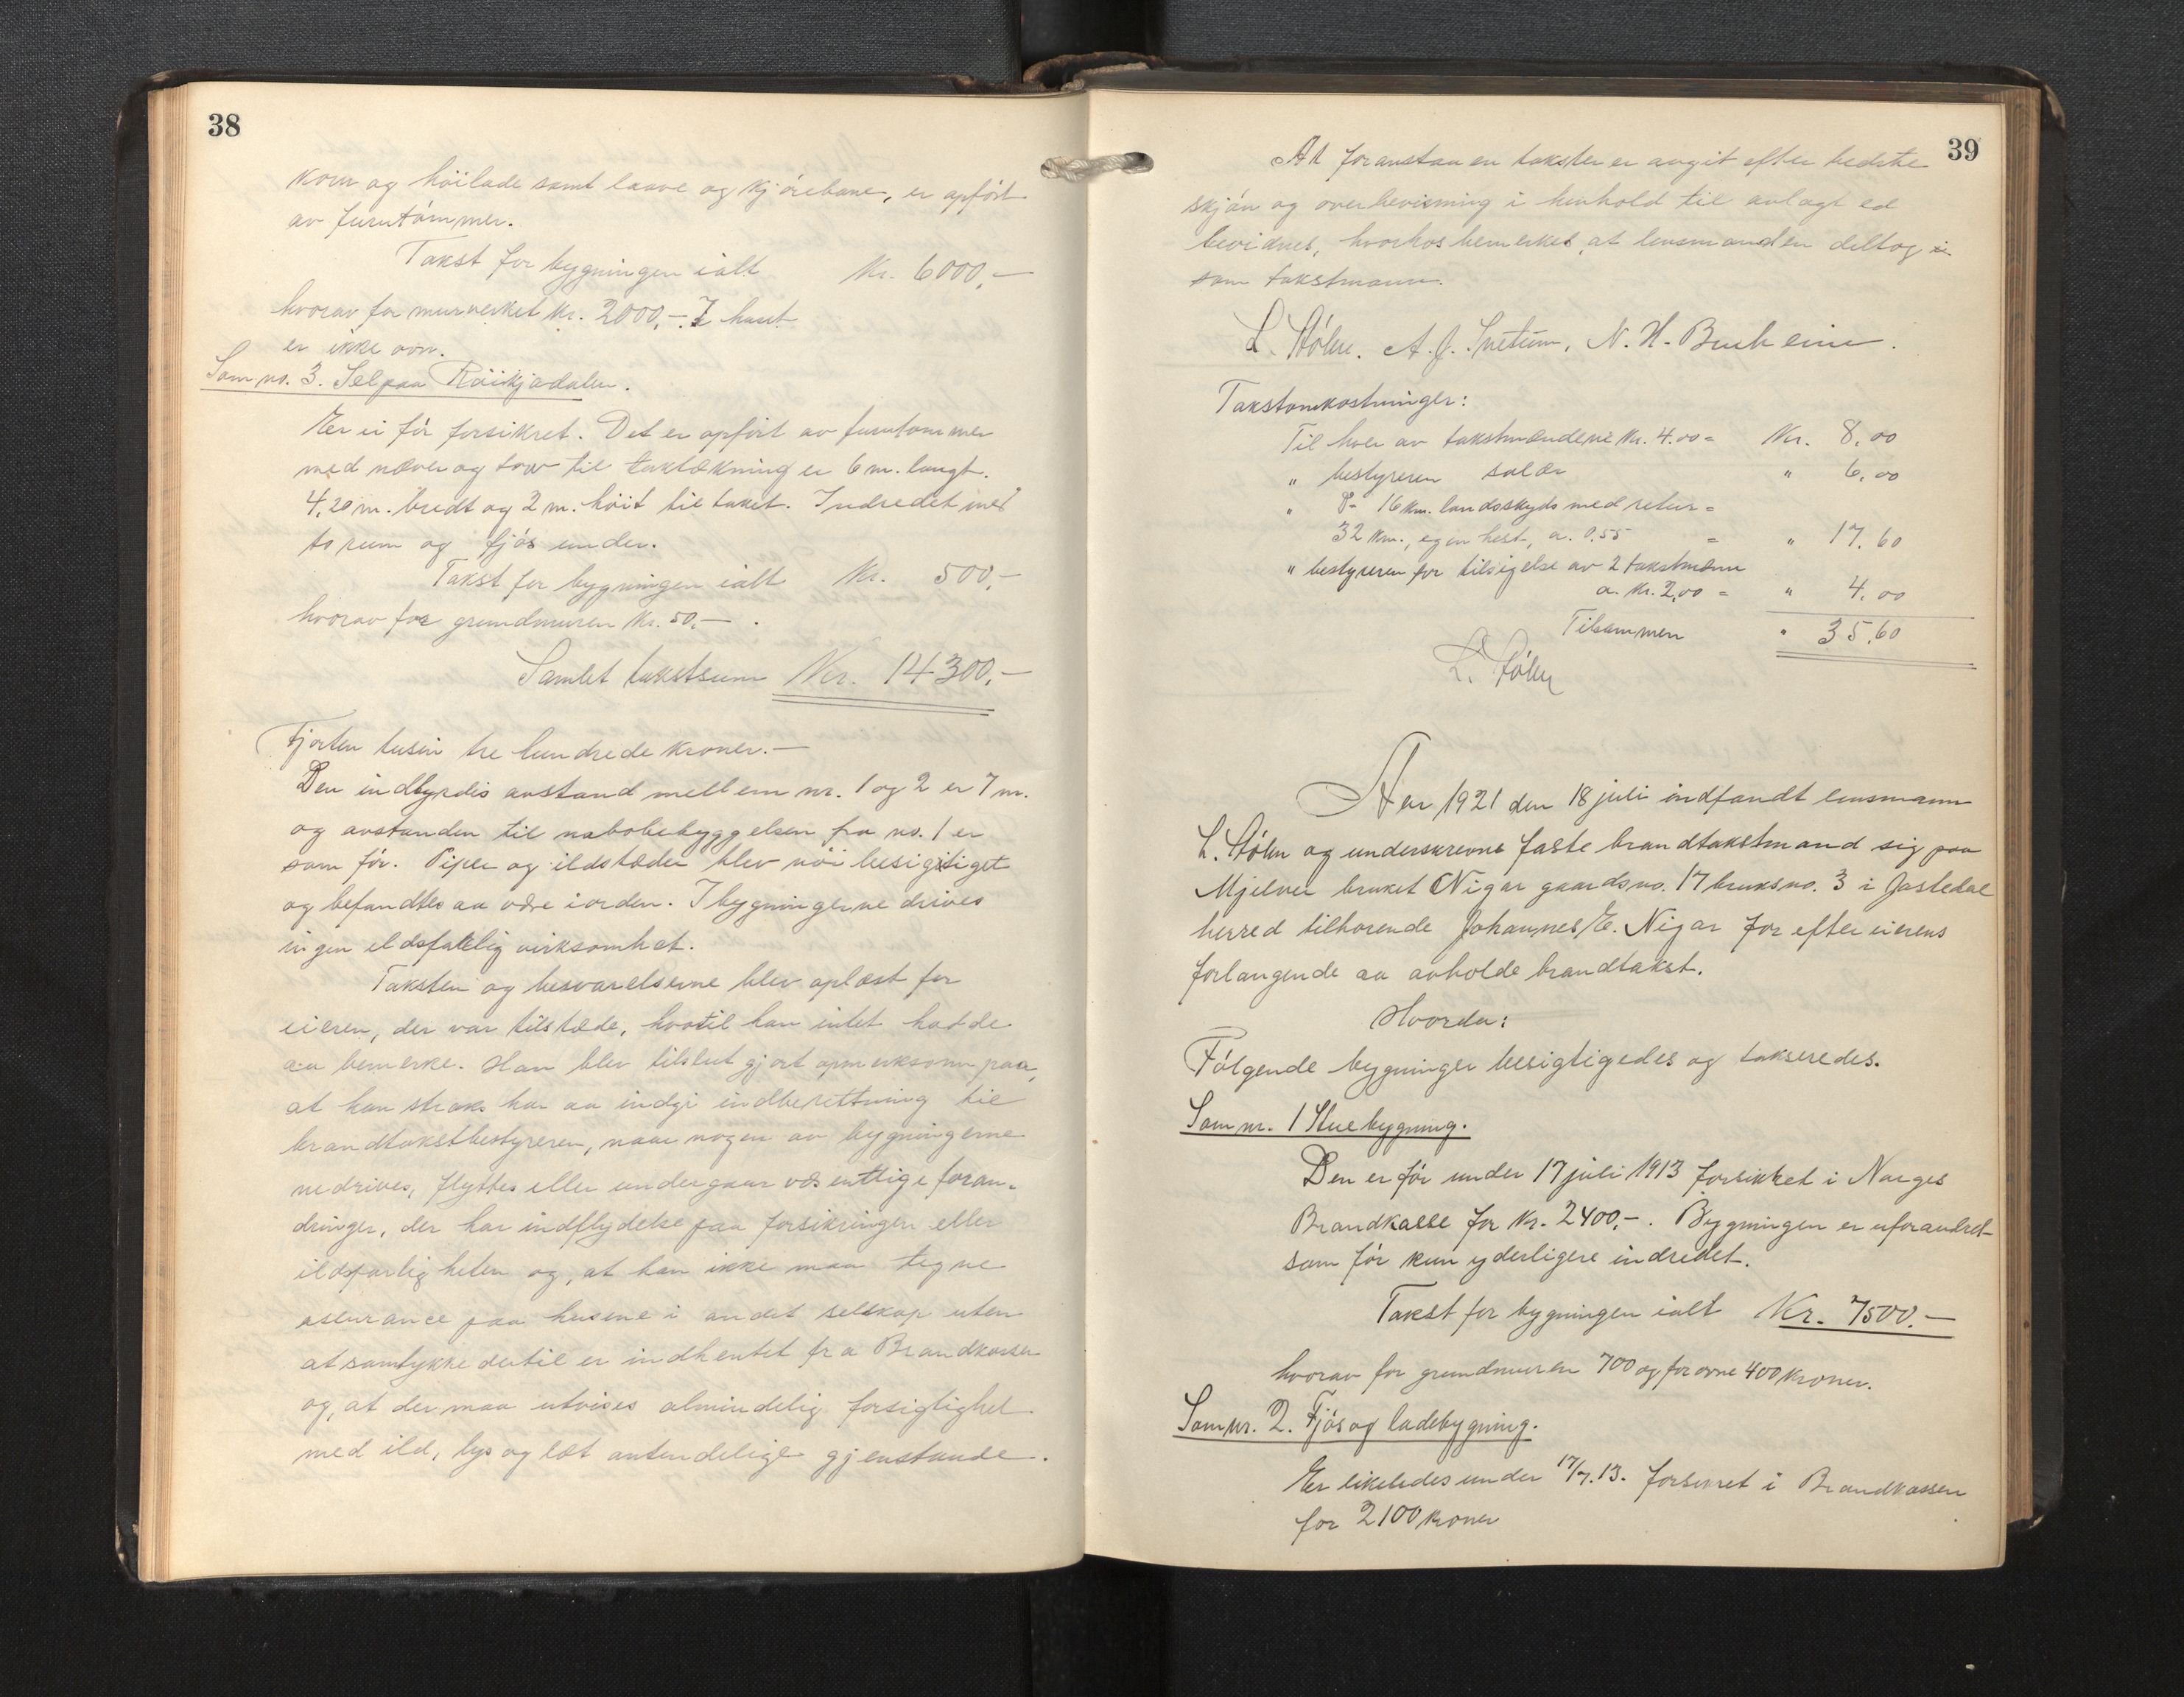 38
korn og höilade samt laave og kjörebane, er opfört
av furutömmer.
Takst for bygningen ialt Kr. 6000,-
hvorav for murverket kr. 2000,-. I huset
er ikke ovn.
Som no. 3. Sel paa Röikjadalen.
Er ei för forsikret. Det er opfört av furutömmer
med næver og torv til taktækning er 6 m. langt.
4,20 m. bredt og 2 m. höit til taket. Indredet med
to rum og fjös under.
Takst for bygningen ialt Kr. 500,-
hvorav for grundmuren Kr. 50,-.
Samlet takstsum Kr. 14300,-
Fjorten tusen tre hundrede kroner.-
Den indbyrdis avstand mellem nr. 1 og 2 er 7 m.
og avstanden til nabobebyggelsen fra no. 1 er
som för. Piper og ildstæder blev nöi besigtiget
og befandtes aa være i orden. I bygningerne drives
ingen ildsfarlig virksomhet.
Taksten og besvarelserne blev oplæst for
eieren, der var tilstæde, hvortil han intet hadde
aa bemerke. Han blev tilslut gjort opmerksom paa,
at han straks har aa indgi indberettning til
brandtakstbestyreren, naar nogen av bygningerne
nedrives, flyttes eller undergaar væsentlige foran-
dringer, der har indflydelse paa forsikringen eller
ildsfarligheten og, at han ikke maa tegne
assurance paa husene i andet selskap uten
at samtykke dertil er indhentet fra Brandkassen
og, at der maa utvises almindelig forsigtighet
med ild, lys og læt antendelige gjenstande.
39
At foranstaaen takster er avgit efter bedste
skjön og overbevisning i henhold til avlagt ed
bevidnes, hvorhos bemerkes, at lensmanden deltog
som takstmann.
L. Stölen. A. J. Snetum, N. H. Buskeim.
Takstomkostninger:
Til hver av takstmændene Kr. 4.00 = Kr. 8,00
" bestyreren salær " 6,00
" 16 km. landsskyds med retur =
32 Km., egen hest, a. 0,55 = " 17,60
" bestyreren for tilsigelse av 2 takstmænn
a. Kr. 2,00 = " 4,00
Tilsammen " 35,60
L. Stölen
Aar 1921 den 18 juli indfandt lensmann
L. Stölen og underskrevne faste brandtakstmænd sig paa
Mjelver bruket Nigar gaardsno. 17 bruksno. 3 i Jostedal
herred tilhörende Johannes E. Nigar for efter eierens
forlangende aa avholde brandtakst.
Hvorda:
Fölgende bygninger besigtigedes og takseredes.
Som nr. 1 Stuebygning.
Den er för under 17 juli 1913 forsikret i Norges
Brandkasse for Kr. 2400,-. Bygningen er uforandret
som för kun yderligere indredet.
Takst for bygningen ialt Kr. 7500.-
hvorav for grundmuren 700 og for ovne 400 kroner.
Som nr. 2. Fjös og ladebygning.
Er likeledes under 17/7.13. forsikret i Brandkassen
for 2100 kroner